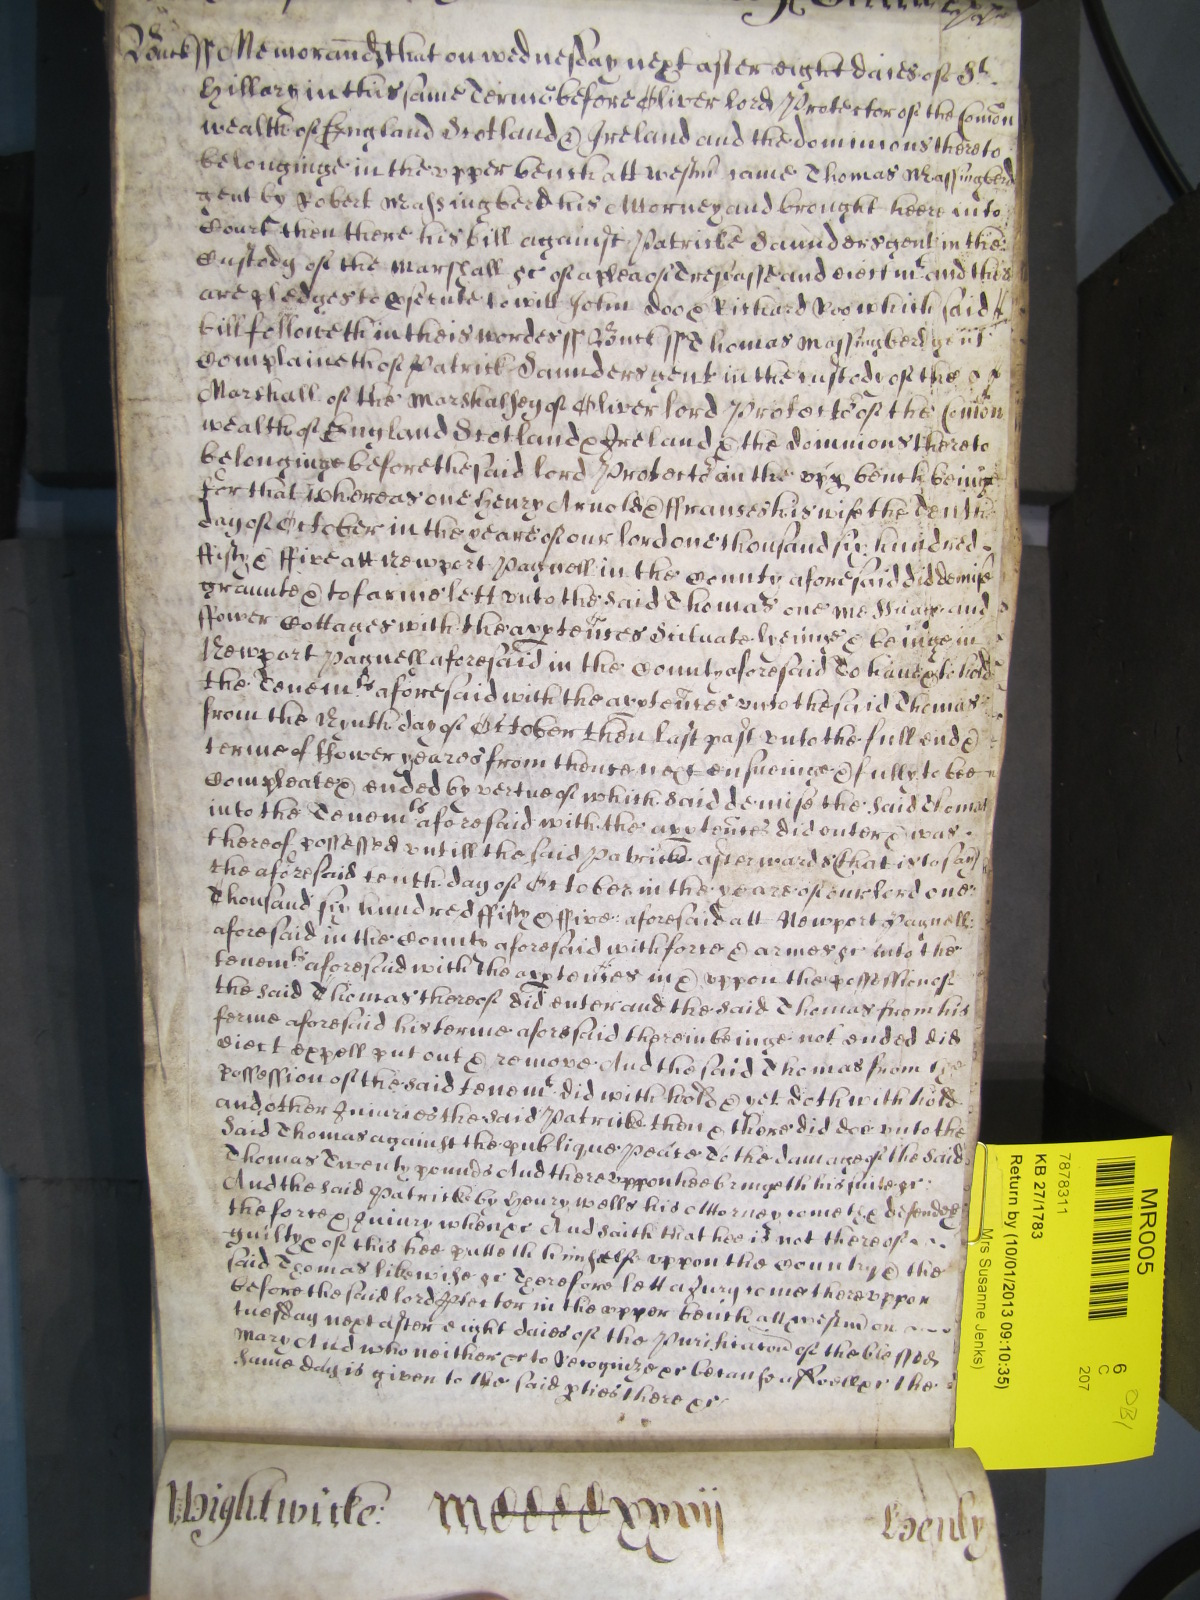 Bucks ss Memorandd that on wednesday next after eight daies of St.
Hillary in this same Terme before Oliver Lord Protector of the Comon
wealth of England Scotland & Ireland and the dominions thereto
belonginge in the upper bench att westmr came Thomas Massingberd
gent by Robert Massingberd his Attorney and brought heere into
Court then there his bill against Patricke Saunders gent in the
Custody of the Marshall &c of a plea of Trespasse and eiectmt. and there
are pledges to prosecute to witt John Doo & Richard Roo which said
bill followeth in theis wordes ss Buck ss Thomas Massingberd gent
Complaineth of Patrick Saunders gent in the custody of the
Marshall of the Marshalsey of Oliver lord Protector of the Comon
wealth of England Scotland & Ireland & the dominions thereto
belonginge before the said lord Protector in the upp bench beinge
For that whereas one Henry Arnold & ffranses his wife the Tenth
day of October in the yeare of our lord one thousand six hundred
ffifty & ffive att Newport Pagnell in the County aforesaid did demise
graunte & to farme lett unto the said Thomas one messuage and
ffower Cottages with the apptences Scituate lyeinge & beinge in
Newport Pagnell aforesaid in the County aforesaid To have & to hold
the Tenemts aforesaid with the apptences unto the said Thomas
from the Nynth day of October then last past unto the full end &
terme of ffower yeares from thence next ensueinge & fully to bee
Compleate & ended by vertue of which said demise the said Thomas
into the Tenemts aforesaid with the apptences did enter & was
thereof possessed untill the said Patricke afterwards (that is to say)
the aforesaid tenth day of October in the yeare of our lord one
Thousand six hundred ffifty & ffive aforesaid att Newport Pagnell
aforesaid in the County aforesaid with force & armes &c into the
tenemts aforesaid with the apptences in & uppon the possession of
the said Thomas thereof did enter and the said Thomas from his
ferme aforesaid his terme aforesaid therein beinge not ended did
eiect expell put out & remove And the said Thomas from the
possession of the said tenemts did with hold & yet doth with hold
and other Iniuries the said Patricke then & there did doe unto the
said Thomas against the publique peace To the damage of the said
Thomas Twenty pounds And thereuppon hee bringeth his suite &c
And the said Patricke by Henry Wells his Attorney cometh & defendeth
the force & Iniury when &c And saith that hee is not thereof
guilty & of this hee putteth himselfe uppon the Country & the
said Thomas likewise &c Therefore lett a Jury come thereuppon
before the said lord Ptector in the upper bench att westmr on
tuesday next after eight daies of the Purificacon of the blessed
Mary And who neither &c to Recognize &c because aswell &c the
same day is given to the said pties there &c
Wightwicke: xxvij Henly
MR005
6
C
207
7878311
KB 27/1783
Return by (10/01/2013 09:10:35)
Mrs Susanne Jenks)